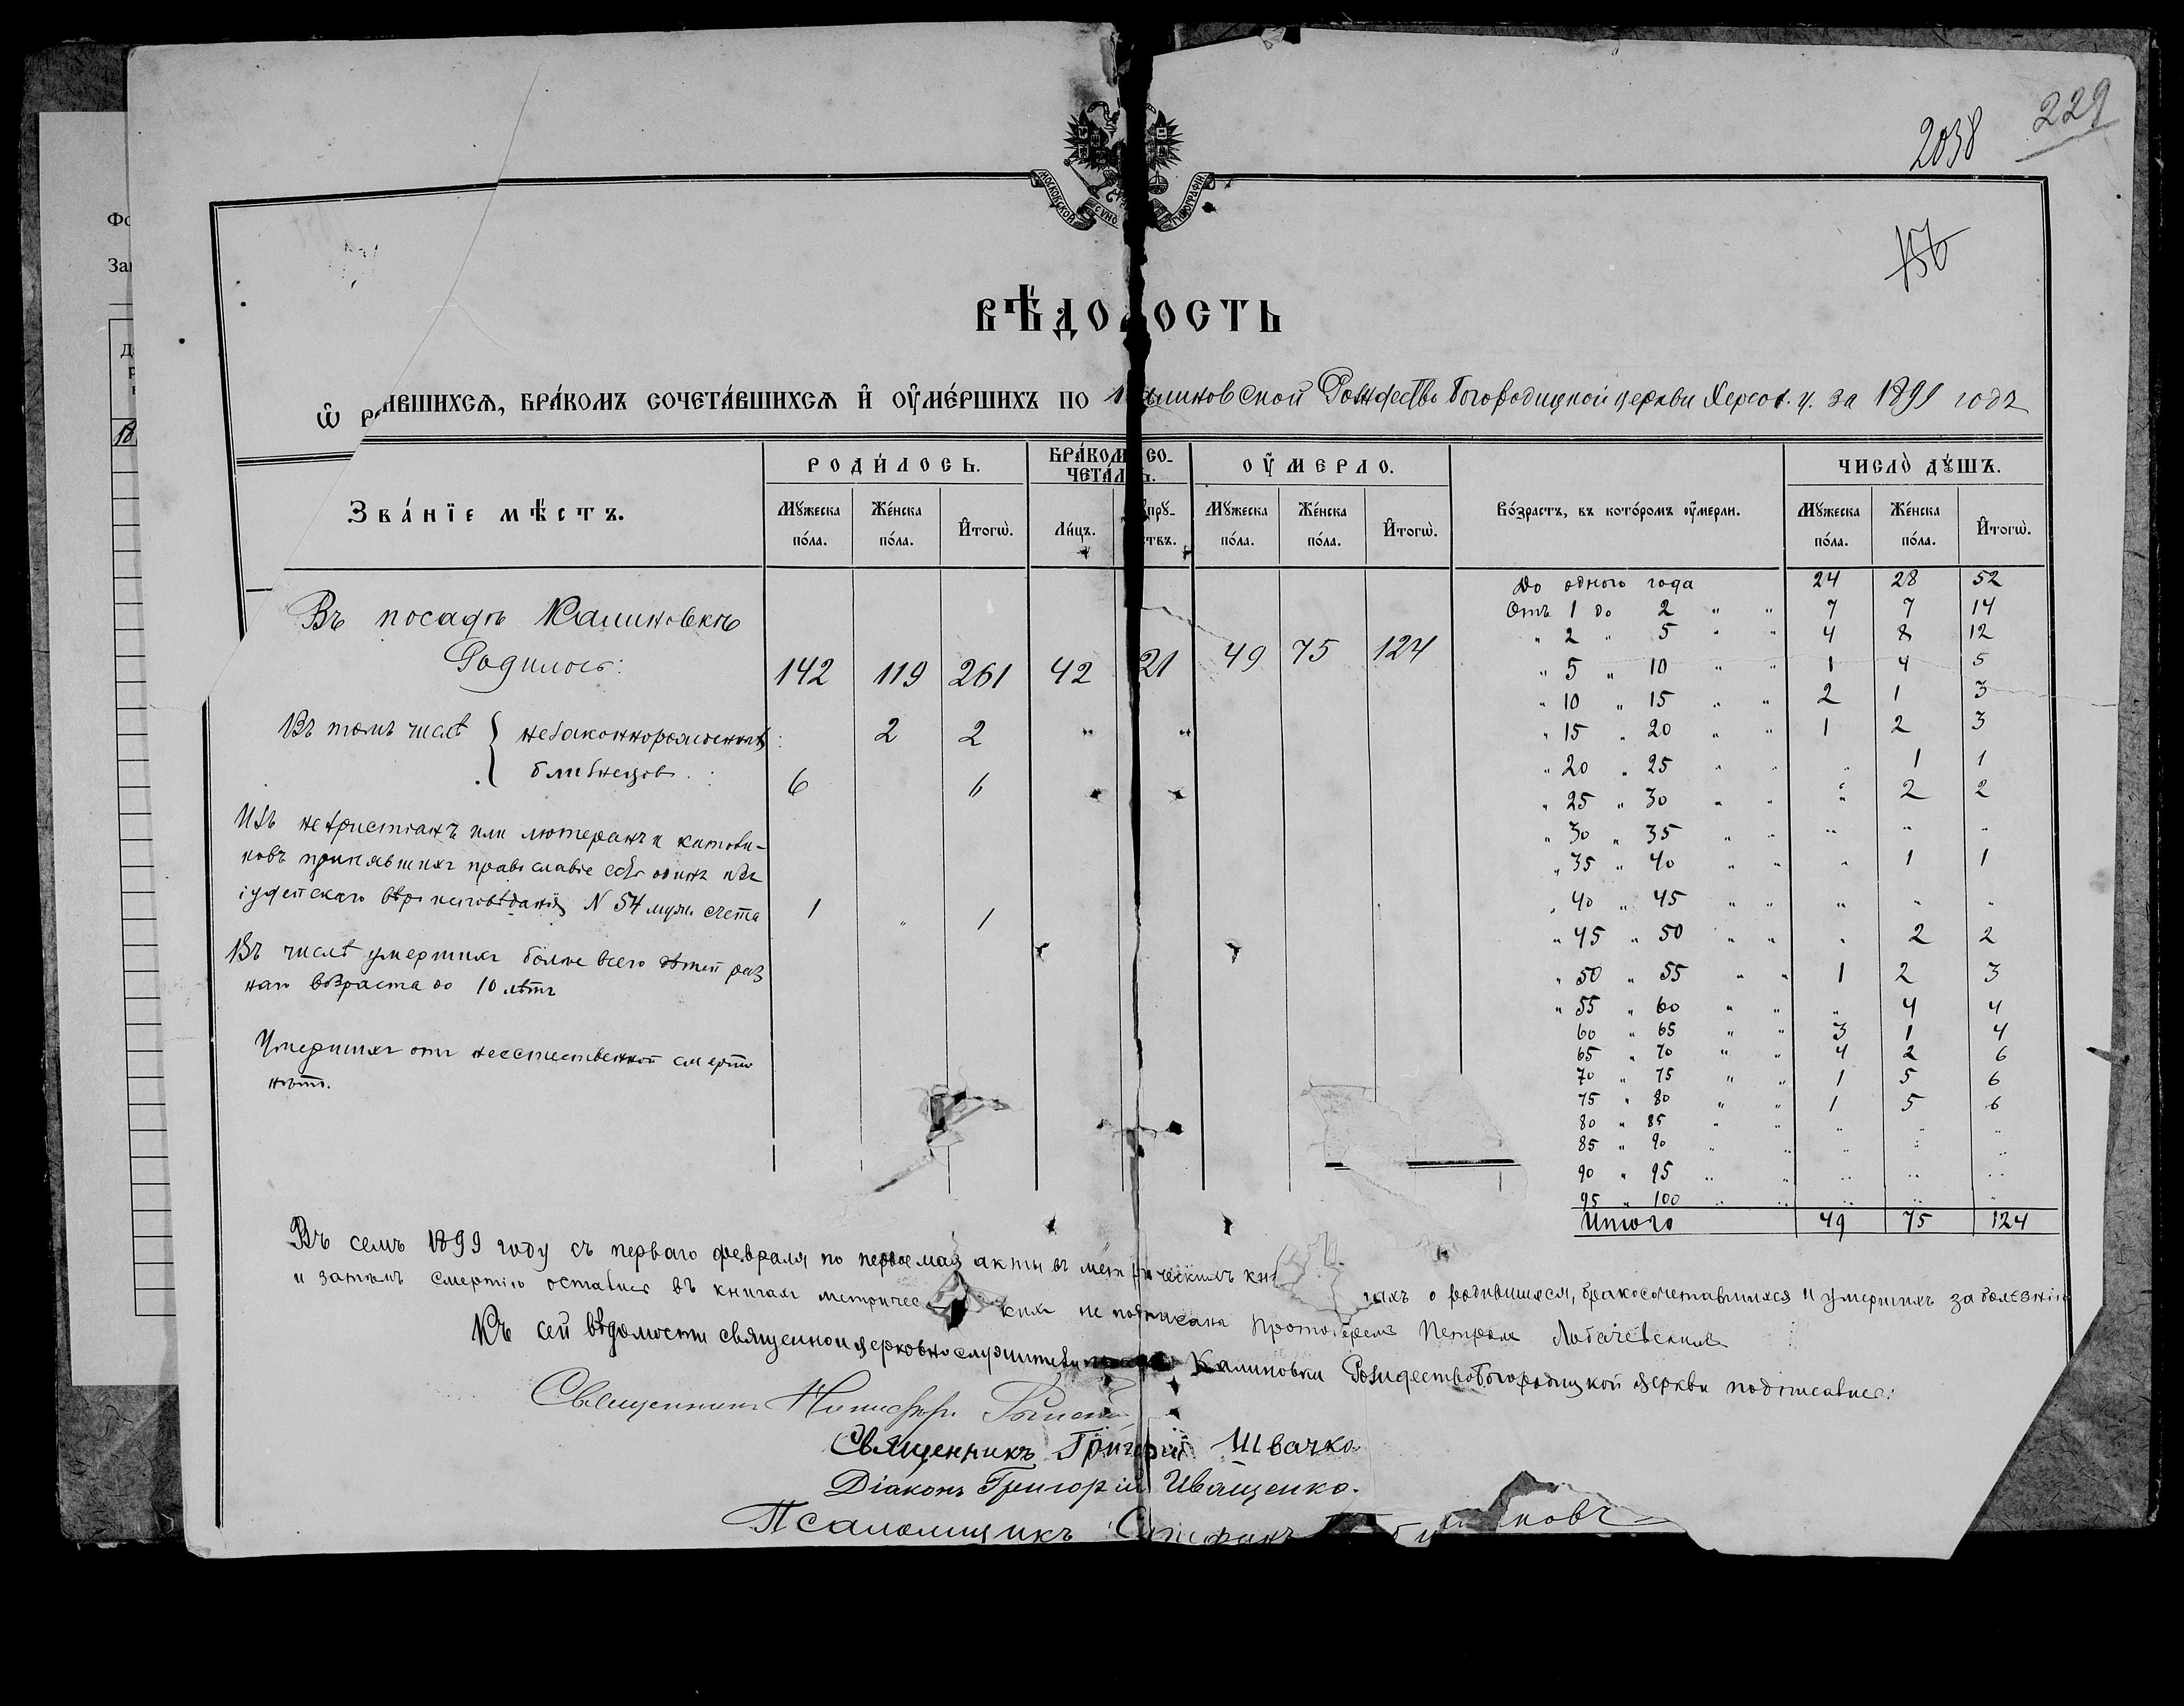 229
2038
156
МОСКОВСКОЙ СѴНО ТИПОГРАФІИ
ВѢДО ОСТЬ
Ѡ Р АВШИХСѦ, БРАКОМЪ СОЧЕТАВШИХСѦ И ОУМЕРШИХЪ ПО Калиновской Рождество Богородицкой церкви Херсон. у. за 1899 годъ
ЗВАНІЕ МѢСТЪ. РОДИЛОСЬ. БРАКОМ СО- ЧЕТАЛ Ь. ОУМЕРЛО. Возрастъ, въ которомъ оумерли. ЧИСЛО ДУШЪ.
Мужеска пола. Женска пола. Итогѡ. Лицъ. пру- ствъ. Мужеска пола. Женска пола. Итогѡ. Мужеска пола. Женска пола. Итогѡ.
Въ посадѣ Калиновкѣ
Родилось: 142 119 261 42 21 49 75 124
Въ томъ числѣ { незаконнорожденныхъ: 2 2 " "
близнецовъ: 6 6
Изъ нехристіанъ или лютеранъ и католи-
ковъ принявшихъ православіе одинъ изъ
іудейскаго вѣроисповѣданія N 54 муж. счета 1 " 1
Въ числѣ умершихъ болѣе всего дѣтей раз
наго возраста до 10 лѣтъ
Умершихъ отъ неестественной смерти
нѣтъ.
До одного года 24 28 52
Отъ 1 до 2 " " 7 7 14
" 2 " 5 " " 4 8 12
" 5 " 10 " " 1 4 5
" 10 " 15 " " 2 1 3
" 15 " 20 " " 1 2 3
" 20 " 25 " " " 1 1
" 25 " 30 " " " 2 2
" 30 " 35 " " " " "
" 35 " 40 " " " 1 1
" 40 " 45 " " " " "
" 45 " 50 " " " 2 2
" 50 " 55 " " 1 2 3
" 55 " 60 " " " 4 4
60 " 65 " " 3 1 4
65 " 70 " " 4 2 6
70 " 75 " " 1 5 6
75 " 80 " " 1 5 6
80 " 85 " " " " "
85 " 90 " " " " "
90 " 95 " " " " "
95 " 100 " " " " "
Итого 49 75 124
Въ семъ 1899 году съ перваго февраля по первое мая акты въ мет рическихъ кни гахъ о родившихся, бракосочетавшихся и умершихъ за болѣзнію
и затѣмъ смертію остались въ книгахъ метричес кихъ не подписаны Протоіереемъ Петромъ Лобачевскимъ
Къ сей вѣдомости священноцерковнослужители Калиновки Рождествобогородицкой церкви подписались:
Священникъ Никифоръ
Священникъ Григорій Швачко
Діаконъ Григорій Иващенко.
Псаломщикъ Стефанъ новъ